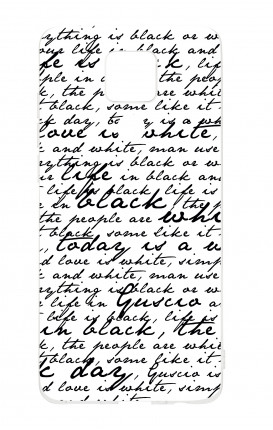 ything is black or w
our life in black and
fe is k, life
ple in a the peop
k, the p are whi
black, some like it
k day, to y is a wh
love is white,
k and white, man use
rything is black or w
r life in black an
t life is black, life is
e in black, the p
the people are whi
black, some like it
, today is a w
d love is white, simp
k and white, man use
ything is black or w
r life in Guscio a
t life is black, life is
in black, the
k, the people are white
t black, some like it
k day, Guscio is
d love is white, simp